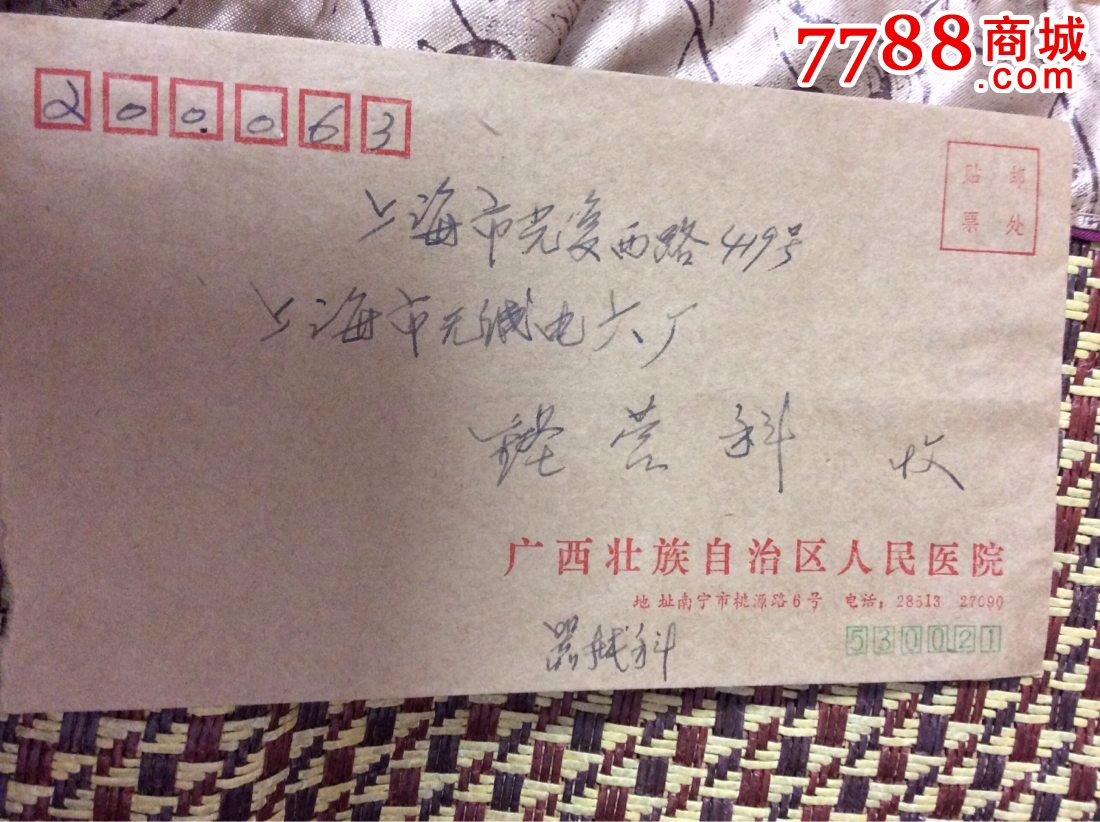 7788商城
.com
200063
贴邮
票处
上海市光复西路419号
上海市无线电六厂
经营科 收
广西壮族自治区人民医院
地址南宁市桃源路6号 电话：28513 27090
器械科
530021